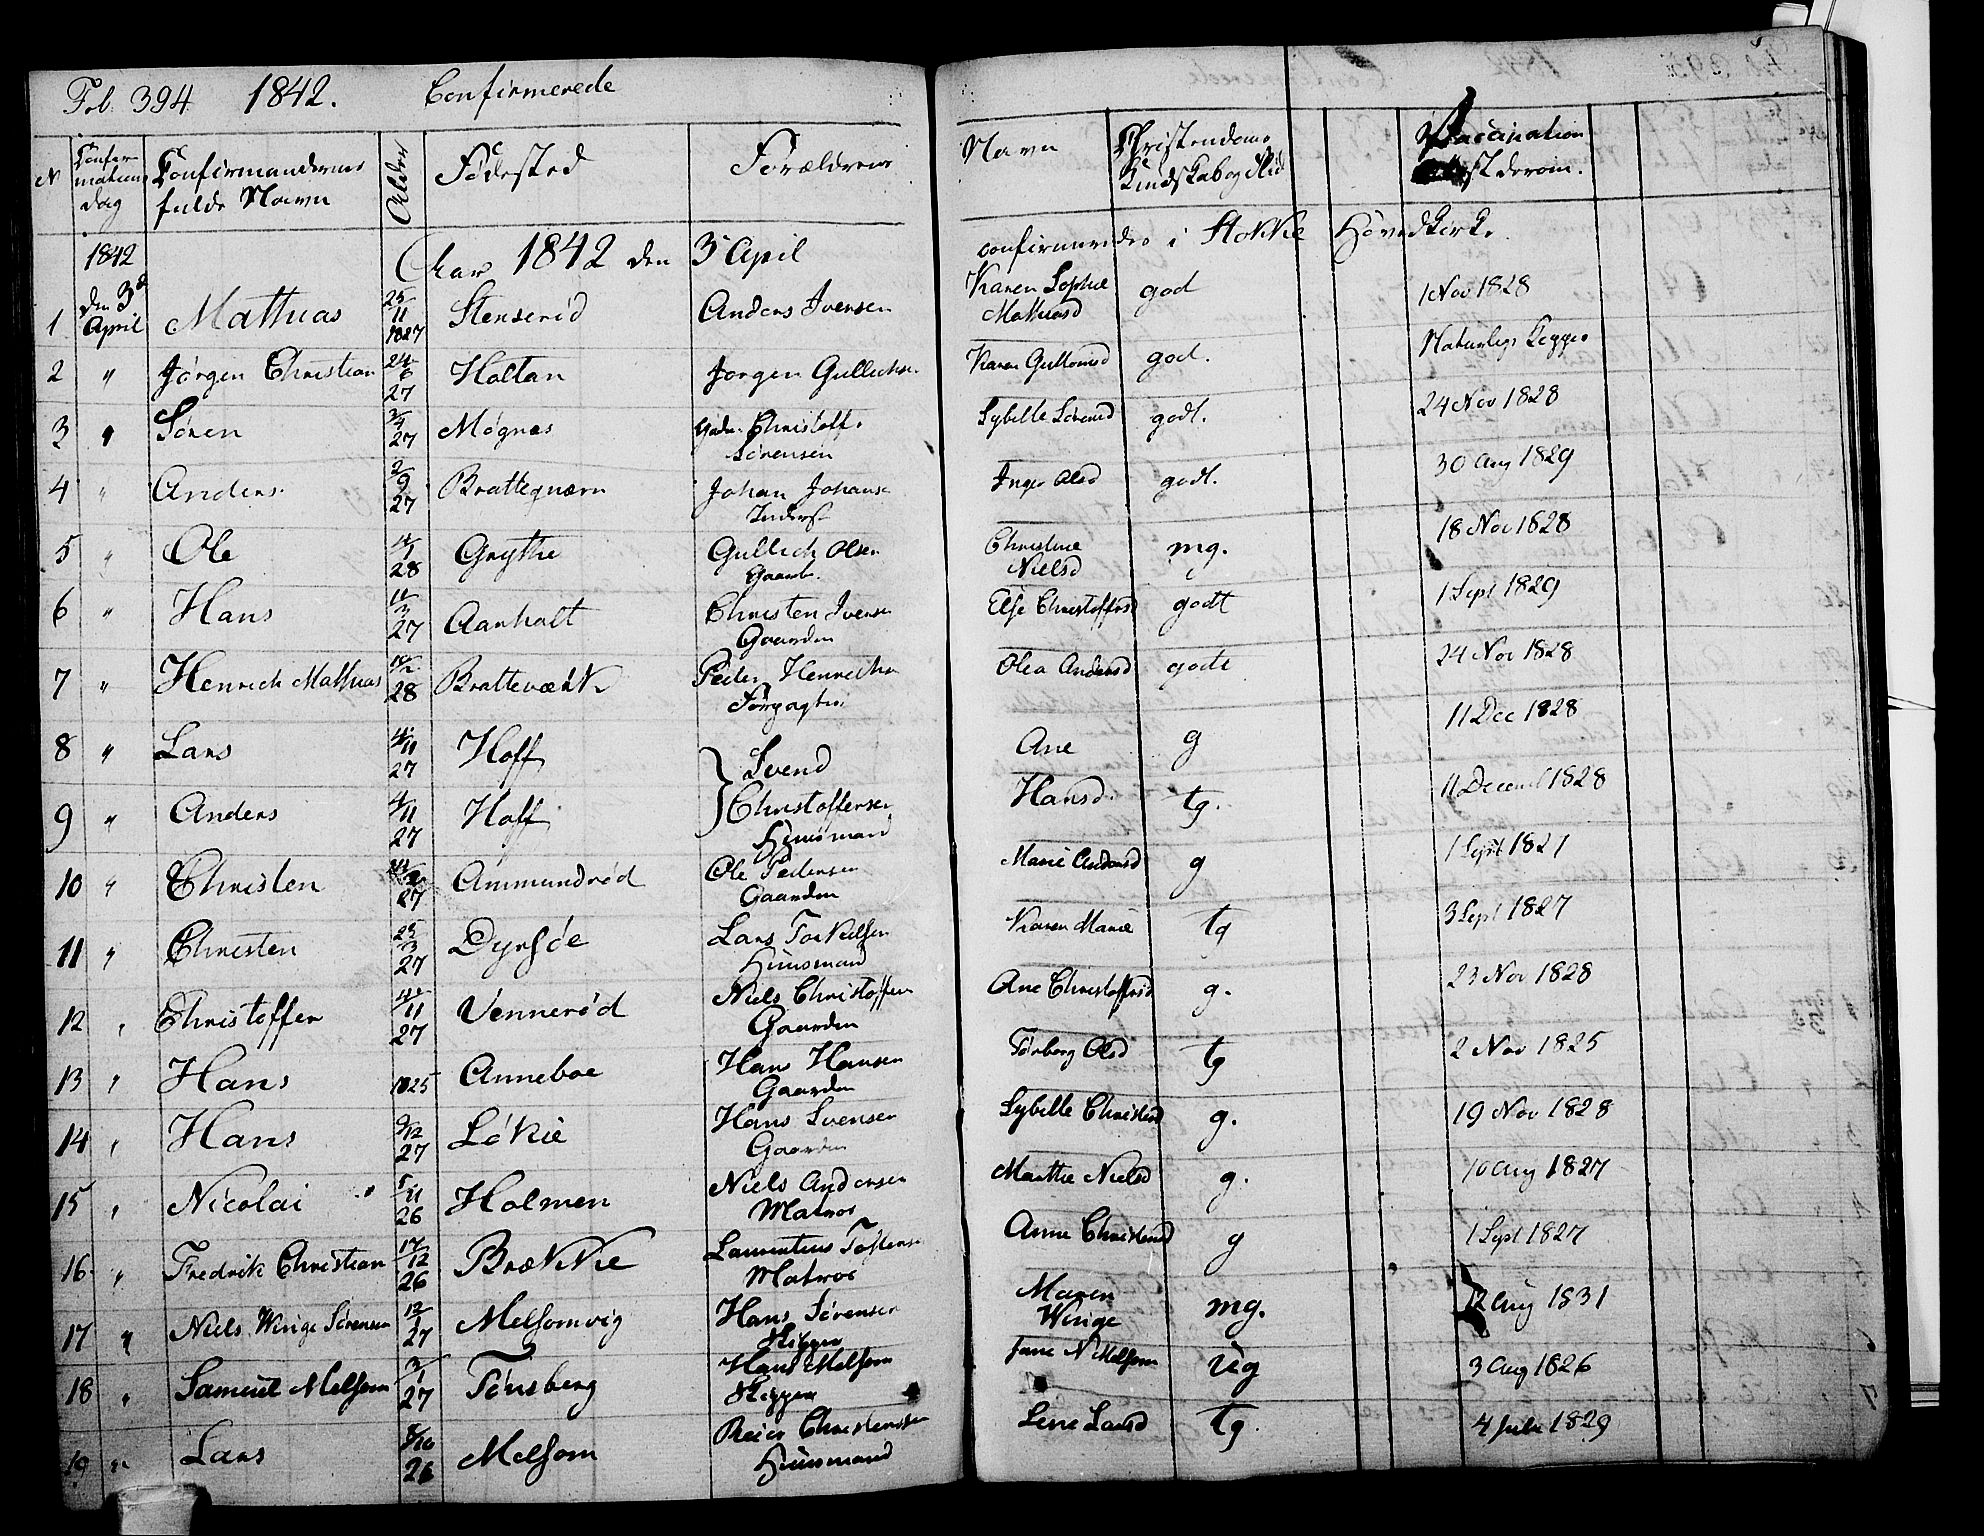 Fol. 394 1842. Confirmerede
N Confirmations dag Confirmandernes fulde Navn Alder Fødested Forældrenes Navn Christendoms Kundskab og Flid Vaccination derom.
1842 Aar 1842 den 3 April confirmeredes i Stokke Hovedkirke.
1 den 3d April Mathias 25/11 1827 Stenserød Anders Iversen Karen Sophie Mathiasd god 1 Nov 1828
2 " Jørgen Christian 24/6 27 Holtan Jørgen Gullichs Karen Guttormsd god. Naturlige Kopper
3 " Søren 3/4 27 Møgnæs Christoff. Sørensen Sybille Sørensd godt. 24 Nov 1828
4 " Anders 2/9 27 Brattegnærn Johan Johans Inderst Inger Olsd godt. 30 Aug 1829
5 " Ole 1/1 28 Grythe Gullich Olsen Gaardb. Christine Nielsd mg. 18 Nov 1828
6 " Hans 11/3 27 Aanholt Christen Iversen Gaardm Else Christoffersd godt 1 Sept 1829
7 " Henrich Mathias 28 Brattevækk Peder Henrichs Forpagter Olea Andersd godt 24 Nov 1828
8 " Lars 4/11 27 Hoff Svend Ane g 11 Dec 1828
9 " Anders 4/11 27 Hoff Christoffersen Huusmand Hansd. tg. 11 Decemb 1828
10 " Christen 27 Ammundrød Ole Pedersen Gaardm Marie Andersd g 1 Sept 1827
11 " Christen 25/3 27 Dyrsøe Lars Torkelsen Huusmand Karen Marie tg 3 Sept 1827
12 " Christoffer 11 27 Vennerød Niels Christoffers Gaardm Ane Christoffersd g. 23 Nov 1828
13 " Hans 1825 Anneboe Hans Hansen Gaardm Torberg Olsd tg 2 Nov 1825
14 " Hans 9/12 27 Løkie Hans Svensen Gaardm Sybille Christensd g. 19 Nov 1828
15 " Nicolai 5/11 26 Holmen Niels Andersen Matros Marthe Nielsd g. 10 Aug 1827
16 " Fredrik Christian 17/12 26 Brække Laurentius Toftens Matros Anne Christensd g 1 Sept 1827
17 " Niels Winge Sørensen 12/1 27 Melsomvig Hans Sørensen Skipper Maren Winge mg. 12 Aug 1831
18 " Samuel Melsom 3/1 27 Tønsberg Hans Melsom Skipper Jane N Melsom ug 3 Aug 1826
19 " Lars 8/10 26 Melsom Reier Christensen Huusmand Lene Larsd tg. 4 Juli 1829